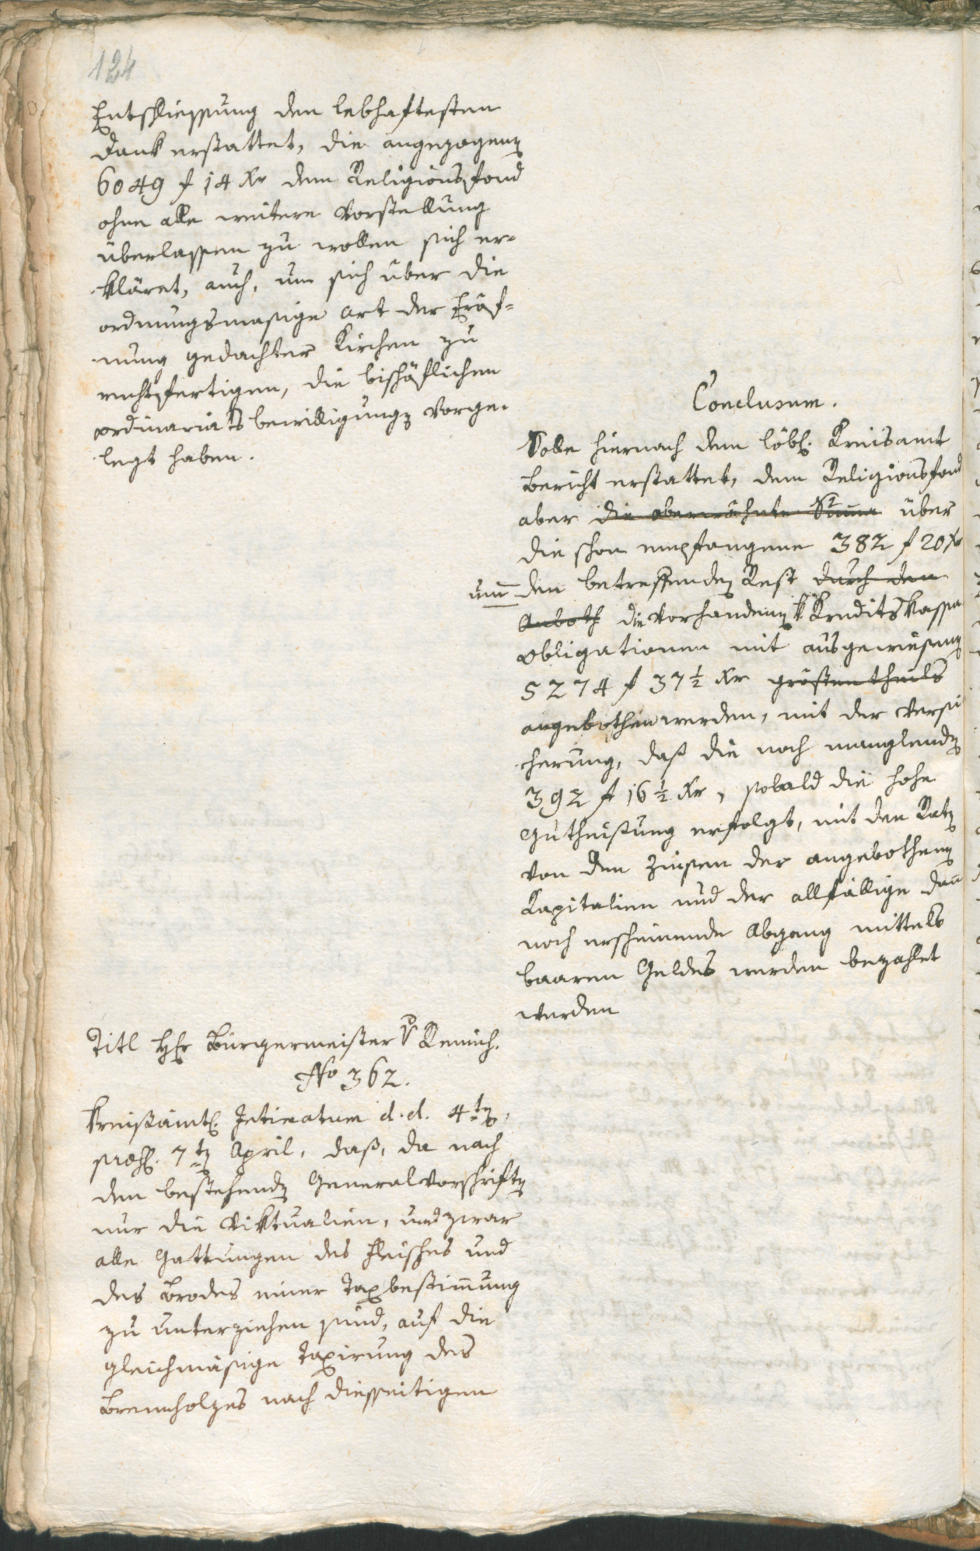 124
Entschliessung den lebhaftesten
Dank erstattet, die angezogenen
6049 f 14 Kr dem Religionsfond
ohne alle weitere Vorstellung
überlassen zu wollen sich er-
kläret, auch, um sich über die
ordnungsmasige Art der Eröf-
nung gedachter Kirchen zu
rechtfertigen, die bischöflichen
ordinariats bewilligungen vorge-
legt haben.
Conclusum.
Solle hiernach dem löbl. Kreisamt
Bericht erstattet, dem Religionsfond
aber die oberwähnte Suma über
die schon empfangene 382 f 20 Kr
um den betreffenden Rest durch den
Anboth die vorhandenen KKreditskassa
obligationen mit ausgewiesenen
5274 f 37 1/2 Kr größtentheils
angebothen werden, mit der Versi
cherung, daß die noch manglenden
392 f 16 1/2 Kr, sobald die hohe
Gutheißung erfolgt, mit den Raten
von den Zinsen der angebothenen
Kapitalien und der allfällige dann
noch erscheinende Abgang mittels
baaren Geldes werden bezahlt
werden
Titl Hr Bürgermeister v
No 362.
Kreisämtl. Intimatum d. d. 4ten,
praes. 7ten April, daß, da nach
den bestehenden Generalvorschriften
nur die Viktualien, und zwar
alle Gattungen des Fleisches und
des Brodes einer Taxbestimung
zu unterziehen sind, auf die
gleichmäsige Taxirung des
Brennholzes nach diesseitigen